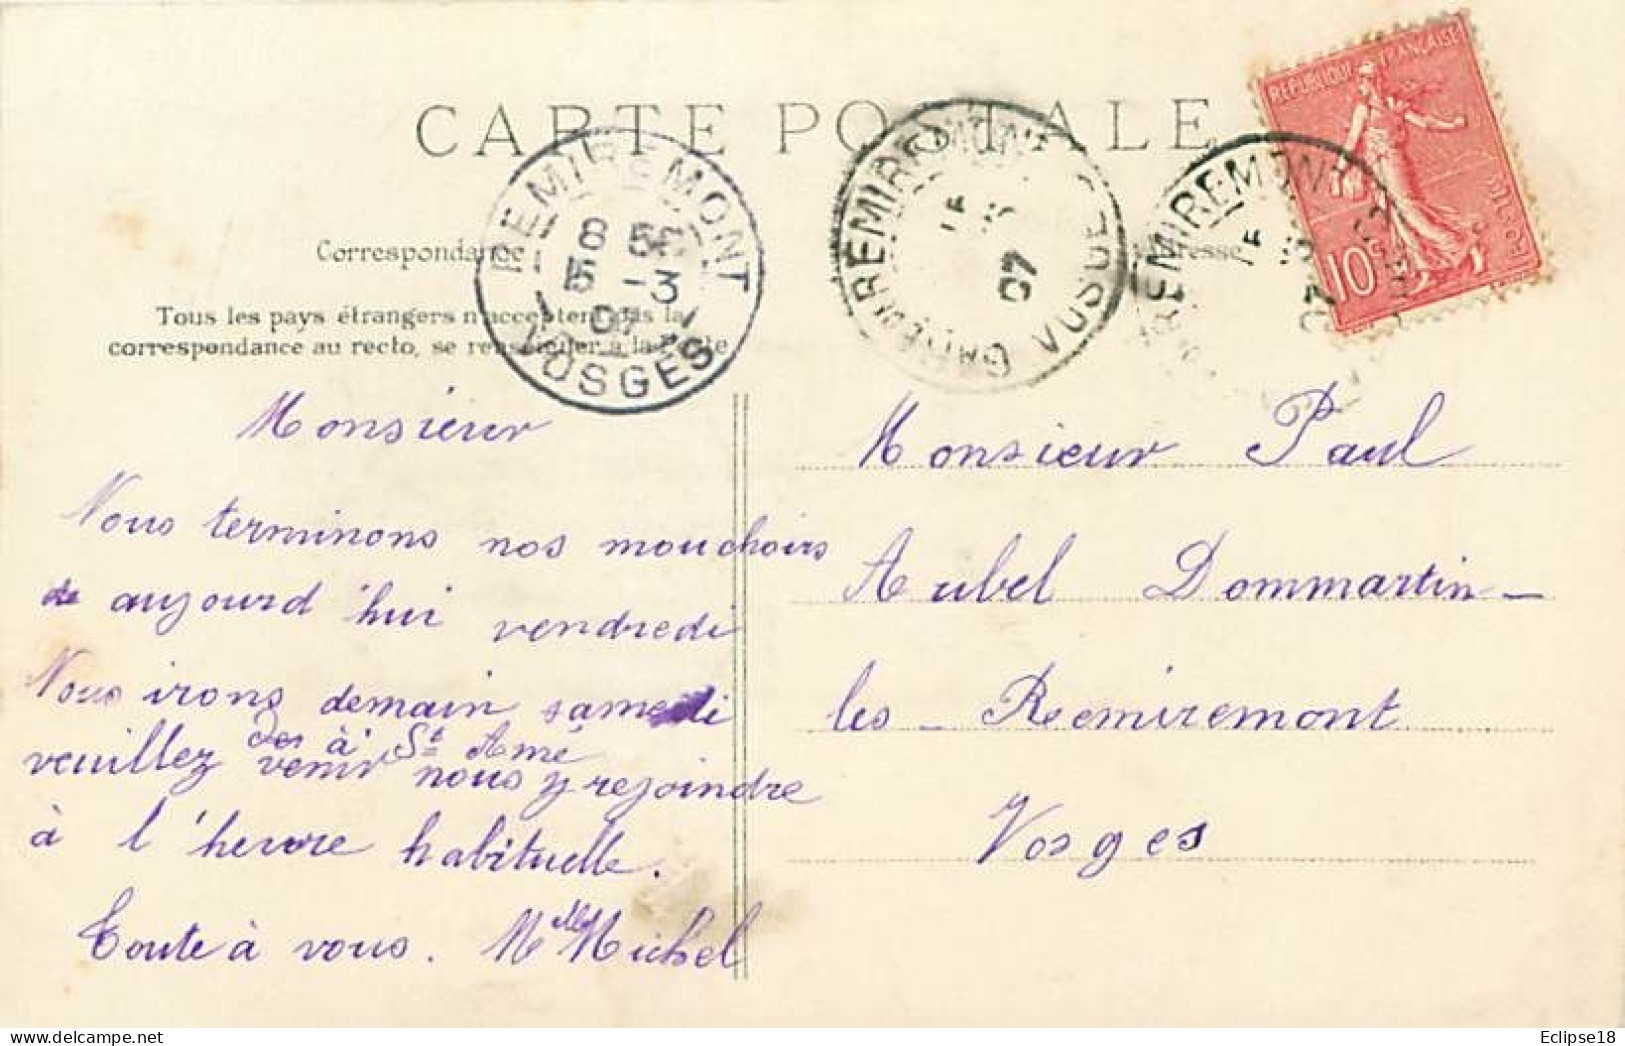 CARTE POSTALE
RÉPUBLIQUE FRANÇAISE
10c
REMIREMONT
8
5 -3
07
VOSGES
REMIREMONT
07
REMIREMONT
07
Correspondance
Tous les pays étrangers n'acceptent pas la
correspondance au recto, se renseigner à la Poste
Monsieur
Nous terminons nos mouchoirs
aujourd'hui vendredi
Nous irons demain samedi
à St Amé
veuillez venir nous y rejoindre
à l'heure habituelle.
Toute à vous. Melle Michel
Monsieur Paul
Aubel Dommartin-
les-Remiremont
Vosges
Eclipse18